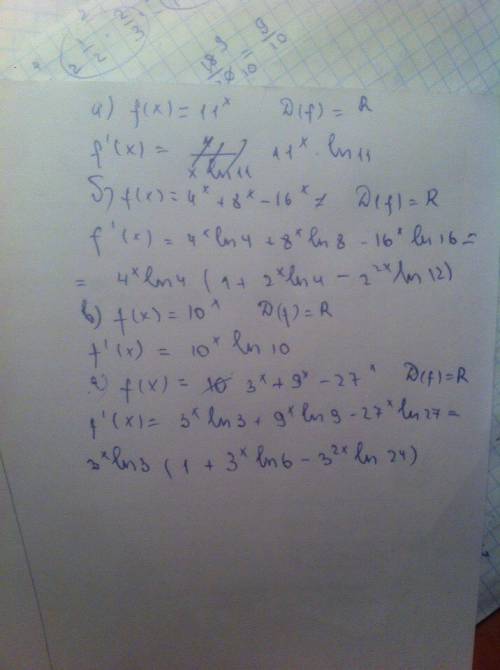 9/10
а) f(x) = 11^x D(f) = R
f'(x) = x ln 11 11^x · ln 11
б) f(x) = 4^x + 8^x - 16^x D(f) = R
f'(x) = 4^x ln 4 + 8^x ln 8 - 16^x ln 16 =
= 4^x ln 4 (1 + 2^x ln 4 - 2^2x ln 12)
в) f(x) = 10^x D(f) = R
f'(x) = 10^x ln 10
г) f(x) = 10 3^x + 9^x - 27^x D(f) = R
f'(x) = 3^x ln 3 + 9^x ln 9 - 27^x ln 27 =
3^x ln 3 (1 + 3^x ln 6 - 3^2x ln 24)